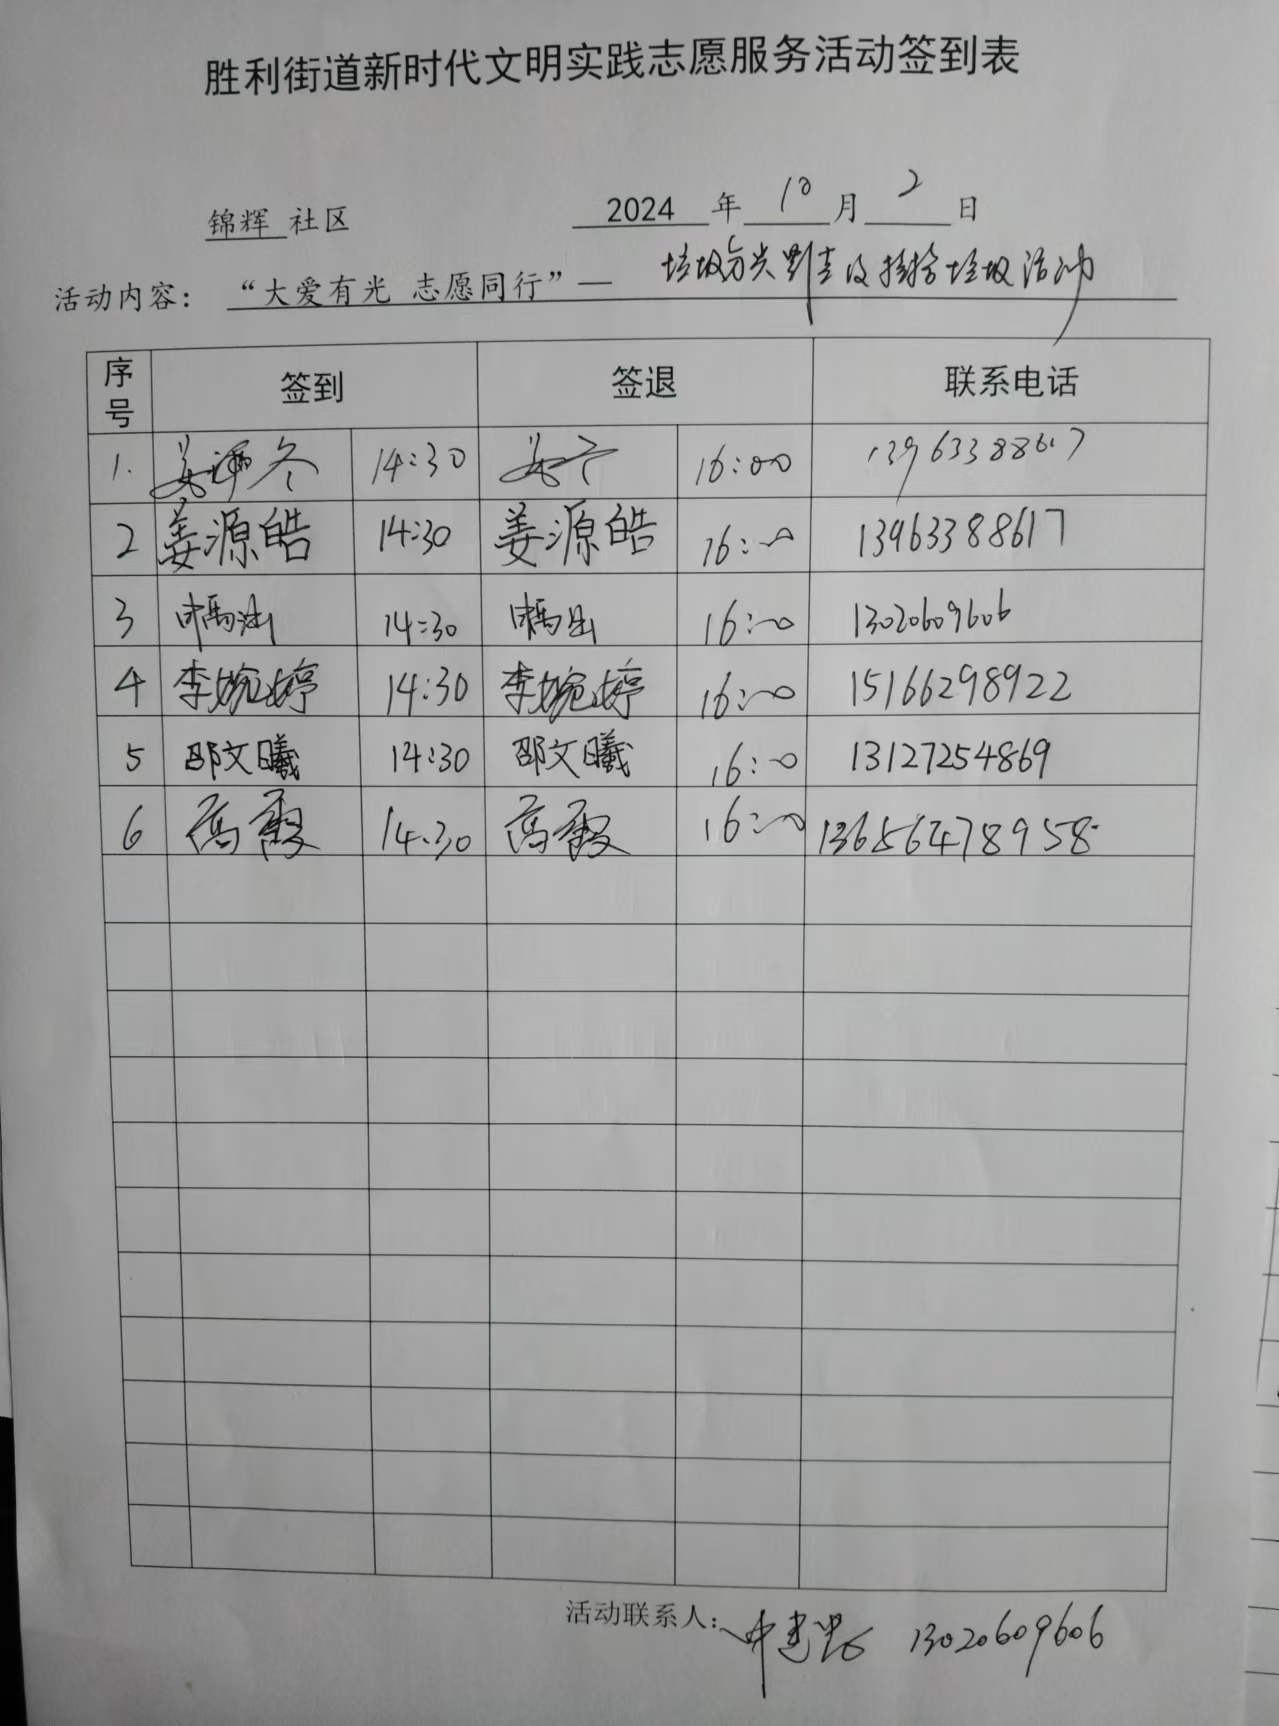 胜利街道新时代文明实践志愿服务活动签到表
锦辉 社区 2024 年 10 月 2 日
活动内容： “大爱有光 志愿同行”— 垃圾分类 及捡拾垃圾活动
序号 签到 签退 联系电话
1. 姜 冬 14:30 姜 16:00 13963388617
2 姜源皓 14:30 姜源皓 16:00 13963388617
3 申禹 14:30 申禹 16:00 13020609606
4 李婉婷 14:30 李婉婷 16:00 15166298922
5 邵文曦 14:30 邵文曦 16:00 13127254869
6 高霞 14:30 高霞 16:00 13656478958
活动联系人： 申建 13020609606